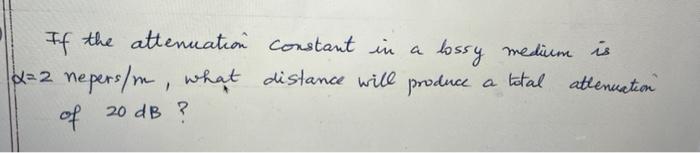 If the attenuation constant in a lossy medium is
α=2 nepers/m, what distance will produce a total attenuation
of 20 dB ?